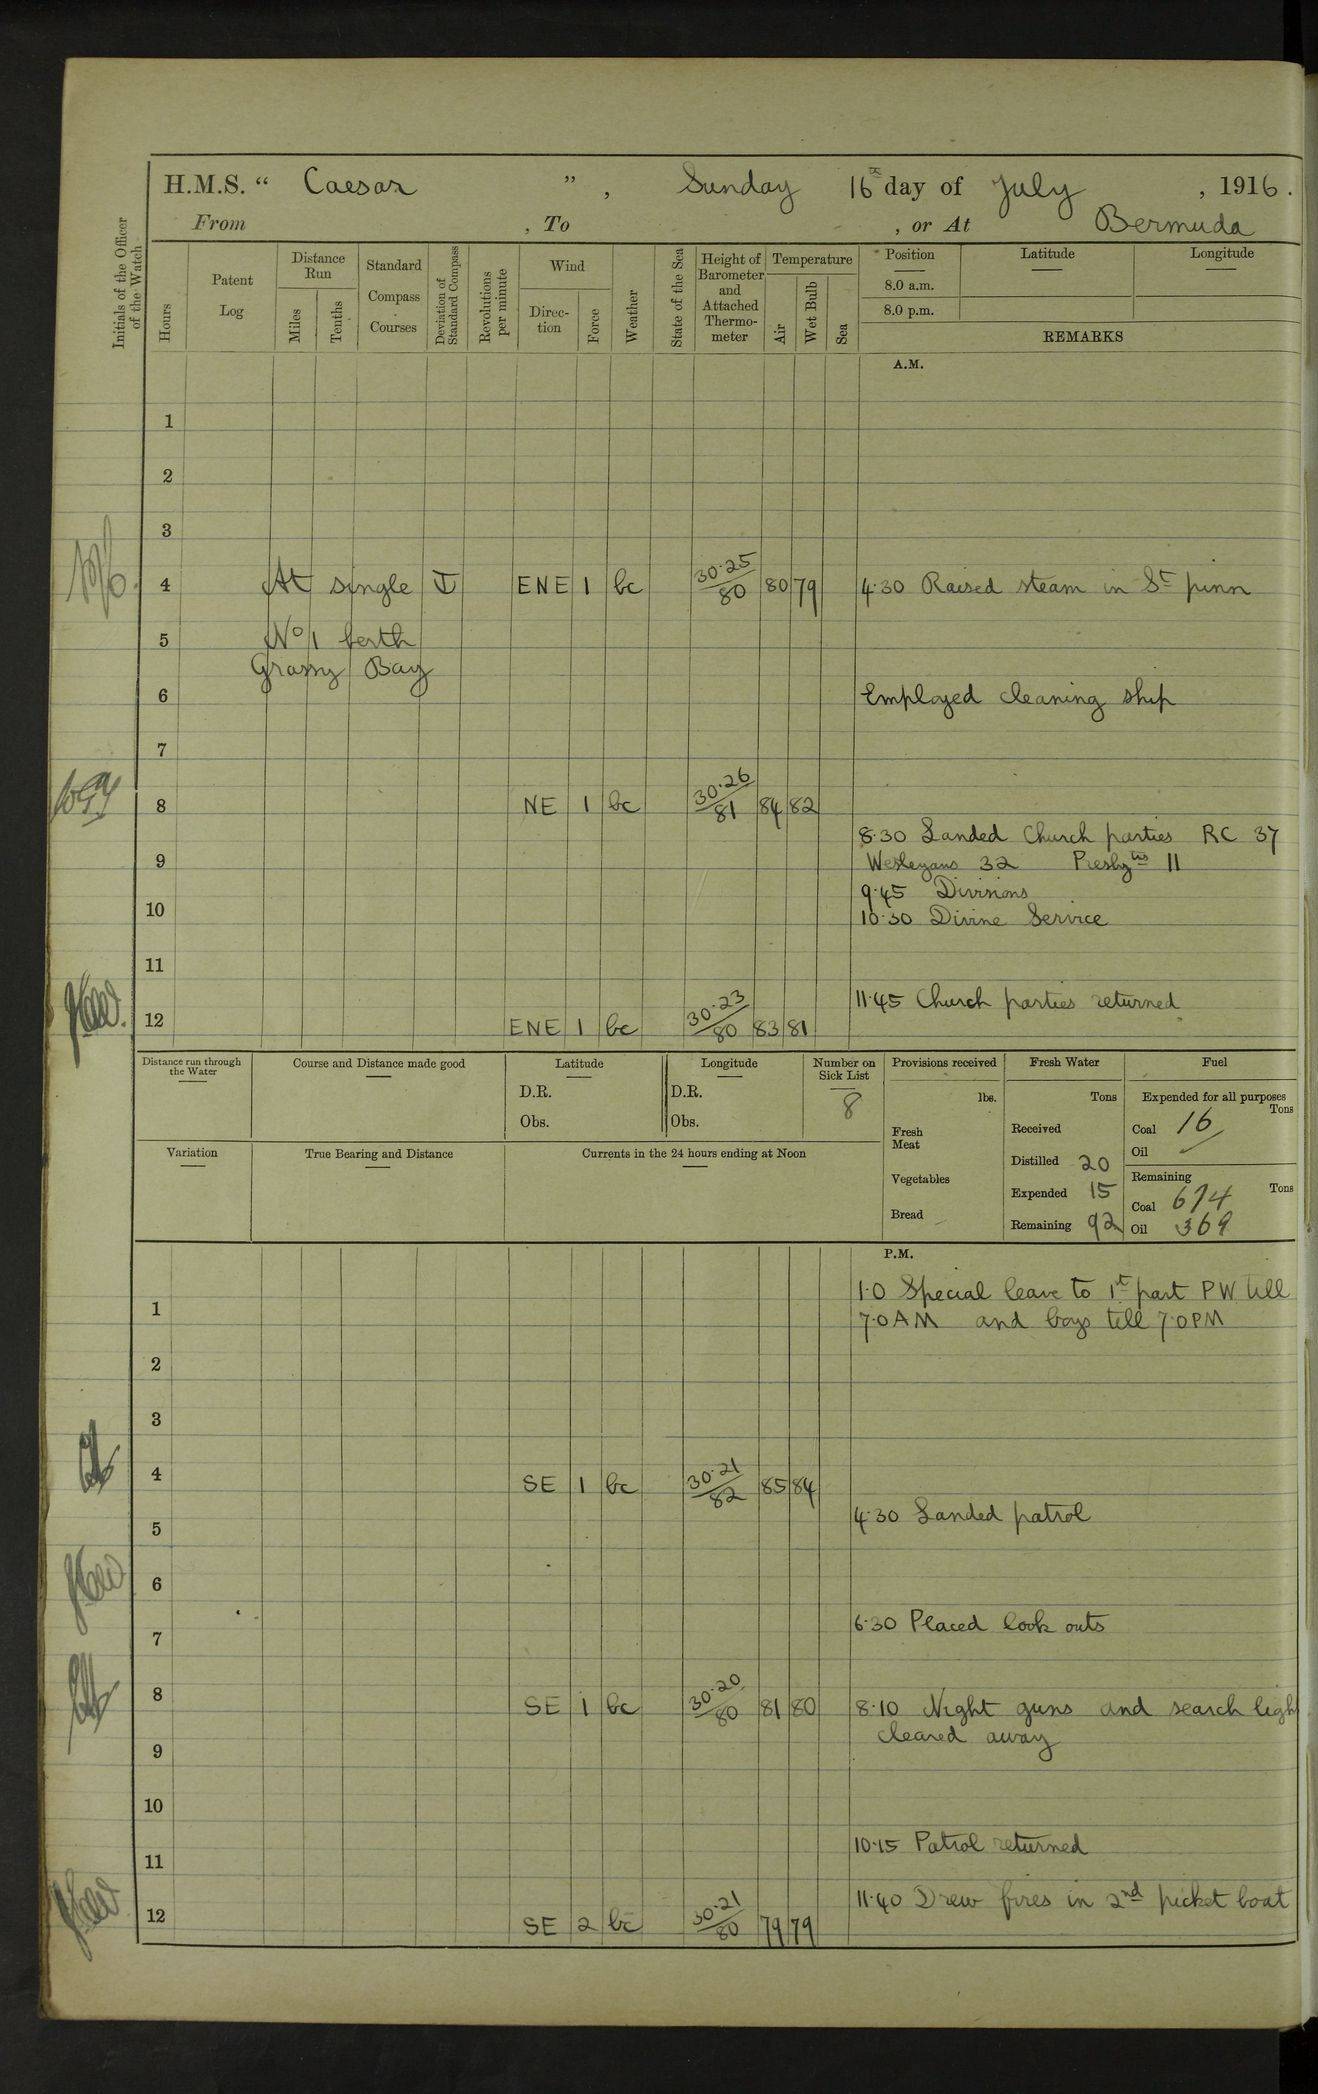 H.M.S. “ Caesar ” , Sunday 16th day of July , 1916 .
From , To , or At Bermuda
Initials of the Officer of the Watch
Hours
Patent Log
Distance Run
Miles
Tenths
Standard Compass Courses
Deviation of Standard Compass
Revolutions per minute
Wind
Direction
Force
Weather
State of the Sea
Height of Barometer and Attached Thermometer
Temperature
Air
Wet Bulb
Sea
Position
8.0 a.m.
8.0 p.m.
Latitude
Longitude
REMARKS
A.M.
1
2
3
4 At single ENE 1 bc 30·25/80 80 79 4·30 Raised steam in St pinn
5 No 1 berth
Grassy Bay
6 Employed cleaning ship
7
8 NE 1 bc 30·26/81 84 82
8·30 Landed Church parties RC 37
9 Wesleyans 32 Presbyths 11
9·45 Divisions
10 10·30 Divine Service
11
11·45 Church parties returned
12 ENE 1 bc 30·23/80 83 81
Distance run through the Water
Course and Distance made good
Latitude
D.R.
Obs.
Longitude
D.R.
Obs.
Number on Sick List
8
Provisions received
lbs.
Fresh Meat
Vegetables
Bread
Fresh Water
Tons
Received
Distilled 20
Expended 15
Remaining 92
Fuel
Expended for all purposes
Tons
Coal 16
Oil
Remaining
Tons
Coal 674
Oil 369
Variation
True Bearing and Distance
Currents in the 24 hours ending at Noon
P.M.
1·0 Special leave to 1st part PW till
1 7·0 AM and boys till 7·0 PM
2
3
4 SE 1 bc 30·21/82 85 84
4·30 Landed patrol
5
6
6·30 Placed look outs
7
8 SE 1 bc 30·20/80 81 80 8·10 Night guns and search ligh
cleared away
9
10
10·15 Patrol returned
11
11·40 Drew fires in 2nd picket boat
12 SE 2 bc 30·21/80 79 79